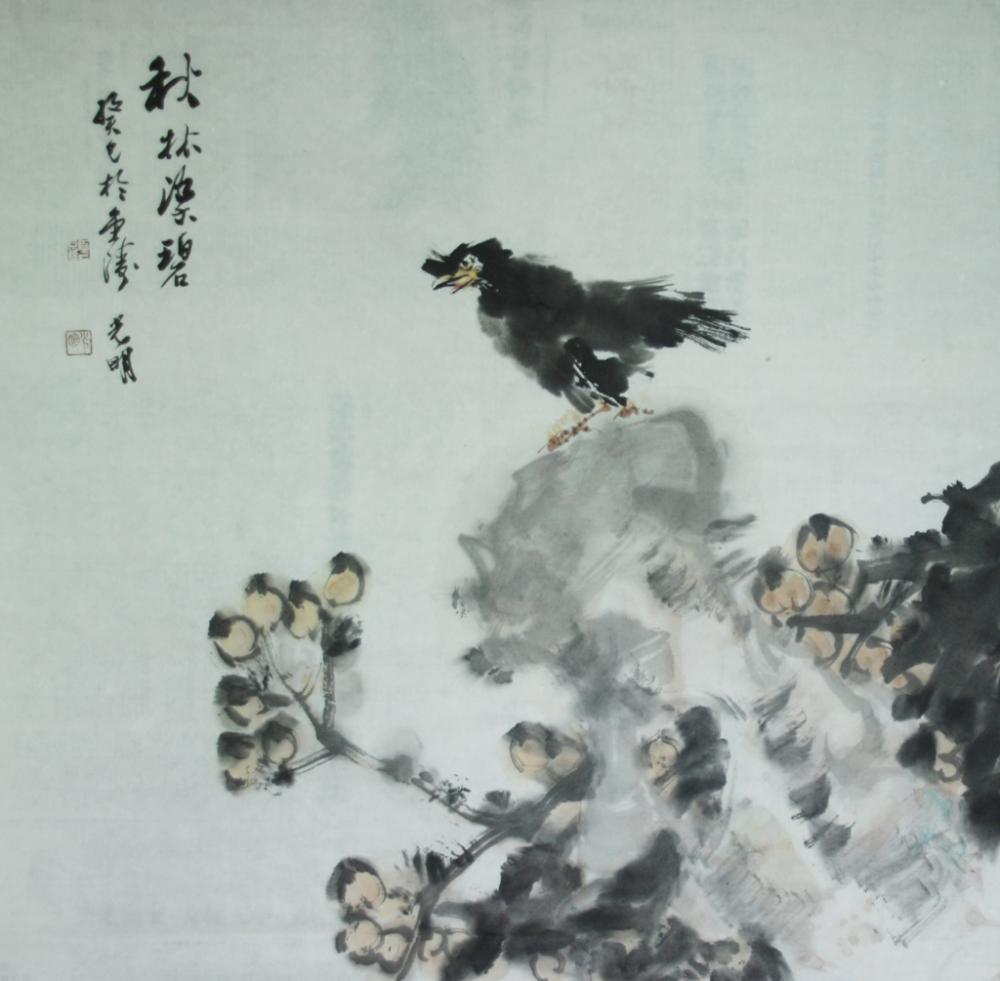 秋林染碧
癸巳於重涛 光明